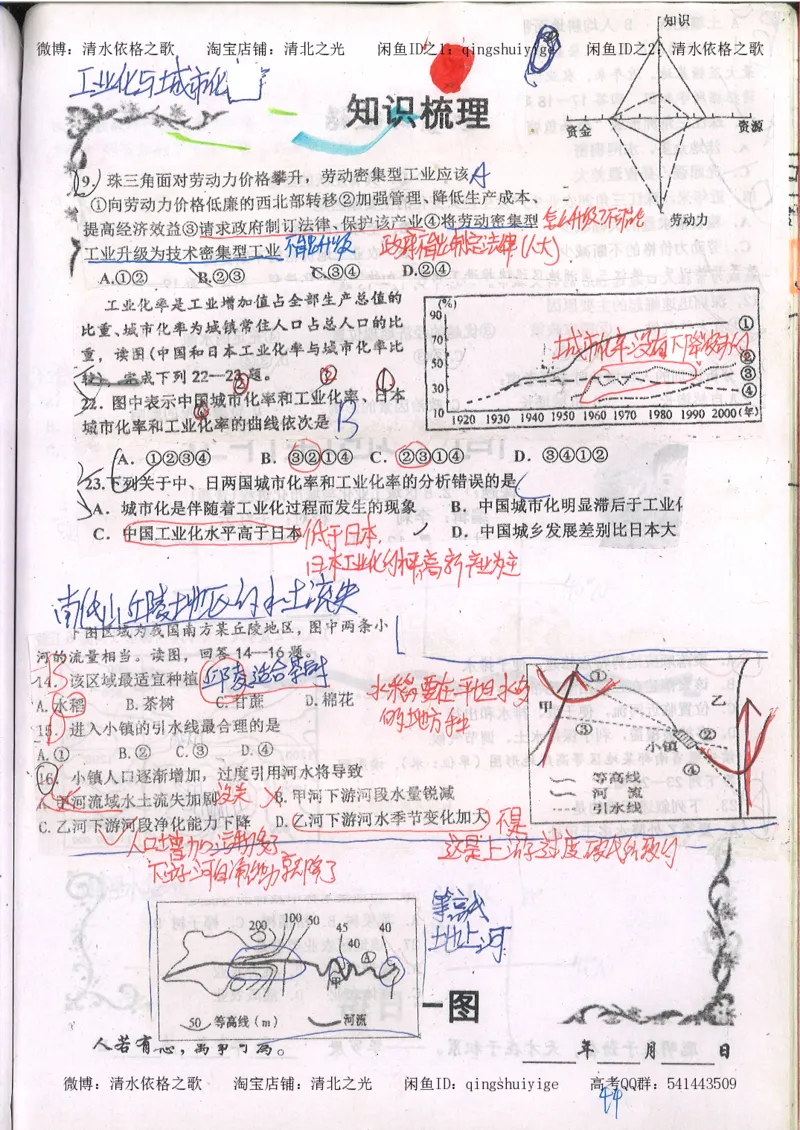 知识
微博：清水依格之歌 淘宝店铺：清北之光 闲鱼ID之1：qingshuiyige 闲鱼ID之2：清水依格之歌
工业化与城市化
知识梳理
资金 资源
劳动力
9. 珠三角面对劳动力价格攀升，劳动密集型工业应该 A
①向劳动力价格低廉的西北部转移②加强管理、降低生产成本、
提高经济效益③请求政府制订法律、保护该产业④将劳动密集型
工业升级为技术密集型工业 不能升级 政府不能制定法律(人大)
A.①② B.②③ C.③④ D.②④
工业化率是工业增加值占全部生产总值的
比重、城市化率为城镇常住人口占总人口的比
重，读图(中国和日本工业化率与城市化率比
较)，完成下列22—23题。
22. 图中表示中国城市化率和工业化率、日本
城市化率和工业化率的曲线依次是 B
(%)
90
70
50
30
10
1920 1930 1940 1950 1960 1970 1980 1990 2000(年)
①
②
③
④
城市化率没有下降
A. ①②③④ B. ③②①④ C. ②③①④ D. ③④①②
23.下列关于中、日两国城市化率和工业化率的分析错误的是 C
A. 城市化是伴随着工业化过程而发生的现象 B. 中国城市化明显滞后于工业化
C. 中国工业化水平高于日本 D. 中国城乡发展差别比日本大
低于日本
日本工业化水平高 新产业为主
南低山丘陵地区的水土流失
下图区域为我国南方某丘陵地区，图中两条小
河的流量相当。读图，回答14—16题。
14. 该区域最适宜种植 丘陵适合茶树
A.水稻 B.茶树 C.甘蔗 D.棉花
水稻要在平坦水多
的地方种
15. 进入小镇的引水线最合理的是
A.① B.② C.③ D.④
16. 小镇人口逐渐增加，过度引用河水将导致
A.甲河流域水土流失加剧 没关 B.甲河下游河段水量锐减
C.乙河下游河段净化能力下降 D.乙河下游河水季节变化加大 不是
人口增加 污染物多
下游河自净能力就降了
这是上游过度砍伐导致的
甲 ① 乙
③ ②
小镇
④
等高线
河 流
引水线
200 100 50 45 40
40 A
甲
50 等高线（m） 河流
等高线
地上河
一图
人若有志，万事可为。
年 月 日
微博：清水依格之歌 淘宝店铺：清北之光 闲鱼ID：qingshuiyige 高考QQ群：541443509
44